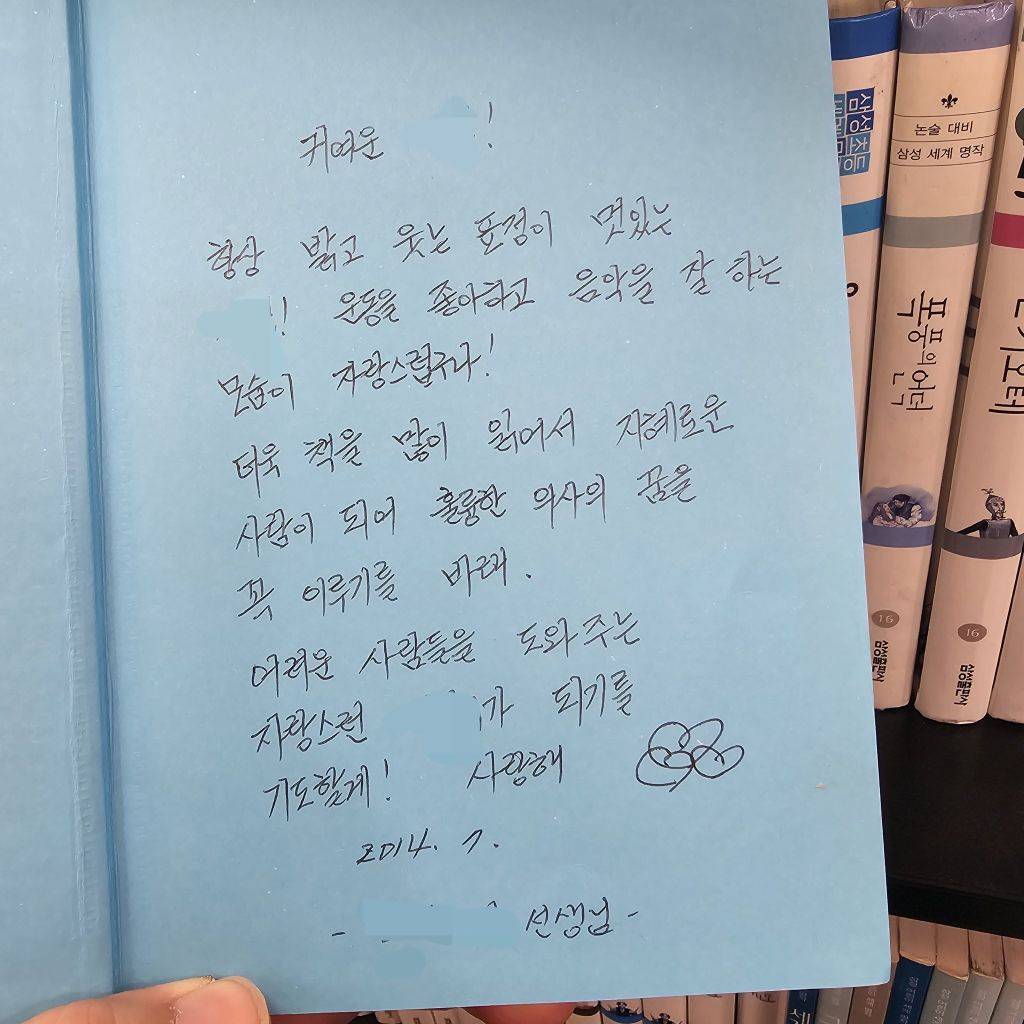 귀여운 !
항상 밝고 웃는 표정이 멋있는
! 운동을 좋아하고 음악을 잘 하는
모습이 자랑스럽구나!
더욱 책을 많이 읽어서 지혜로운
사람이 되어 훌륭한 의사의 꿈을
꼭 이루기를 바래.
어려운 사람들을 도와주는
자랑스런 가 되기를
기도할게! 사랑해
2014. 7.
- 선생님 -
삼성초등
논술 대비
삼성 세계 명작
폭풍의 언덕
16
삼성출판사
16
삼성출판사